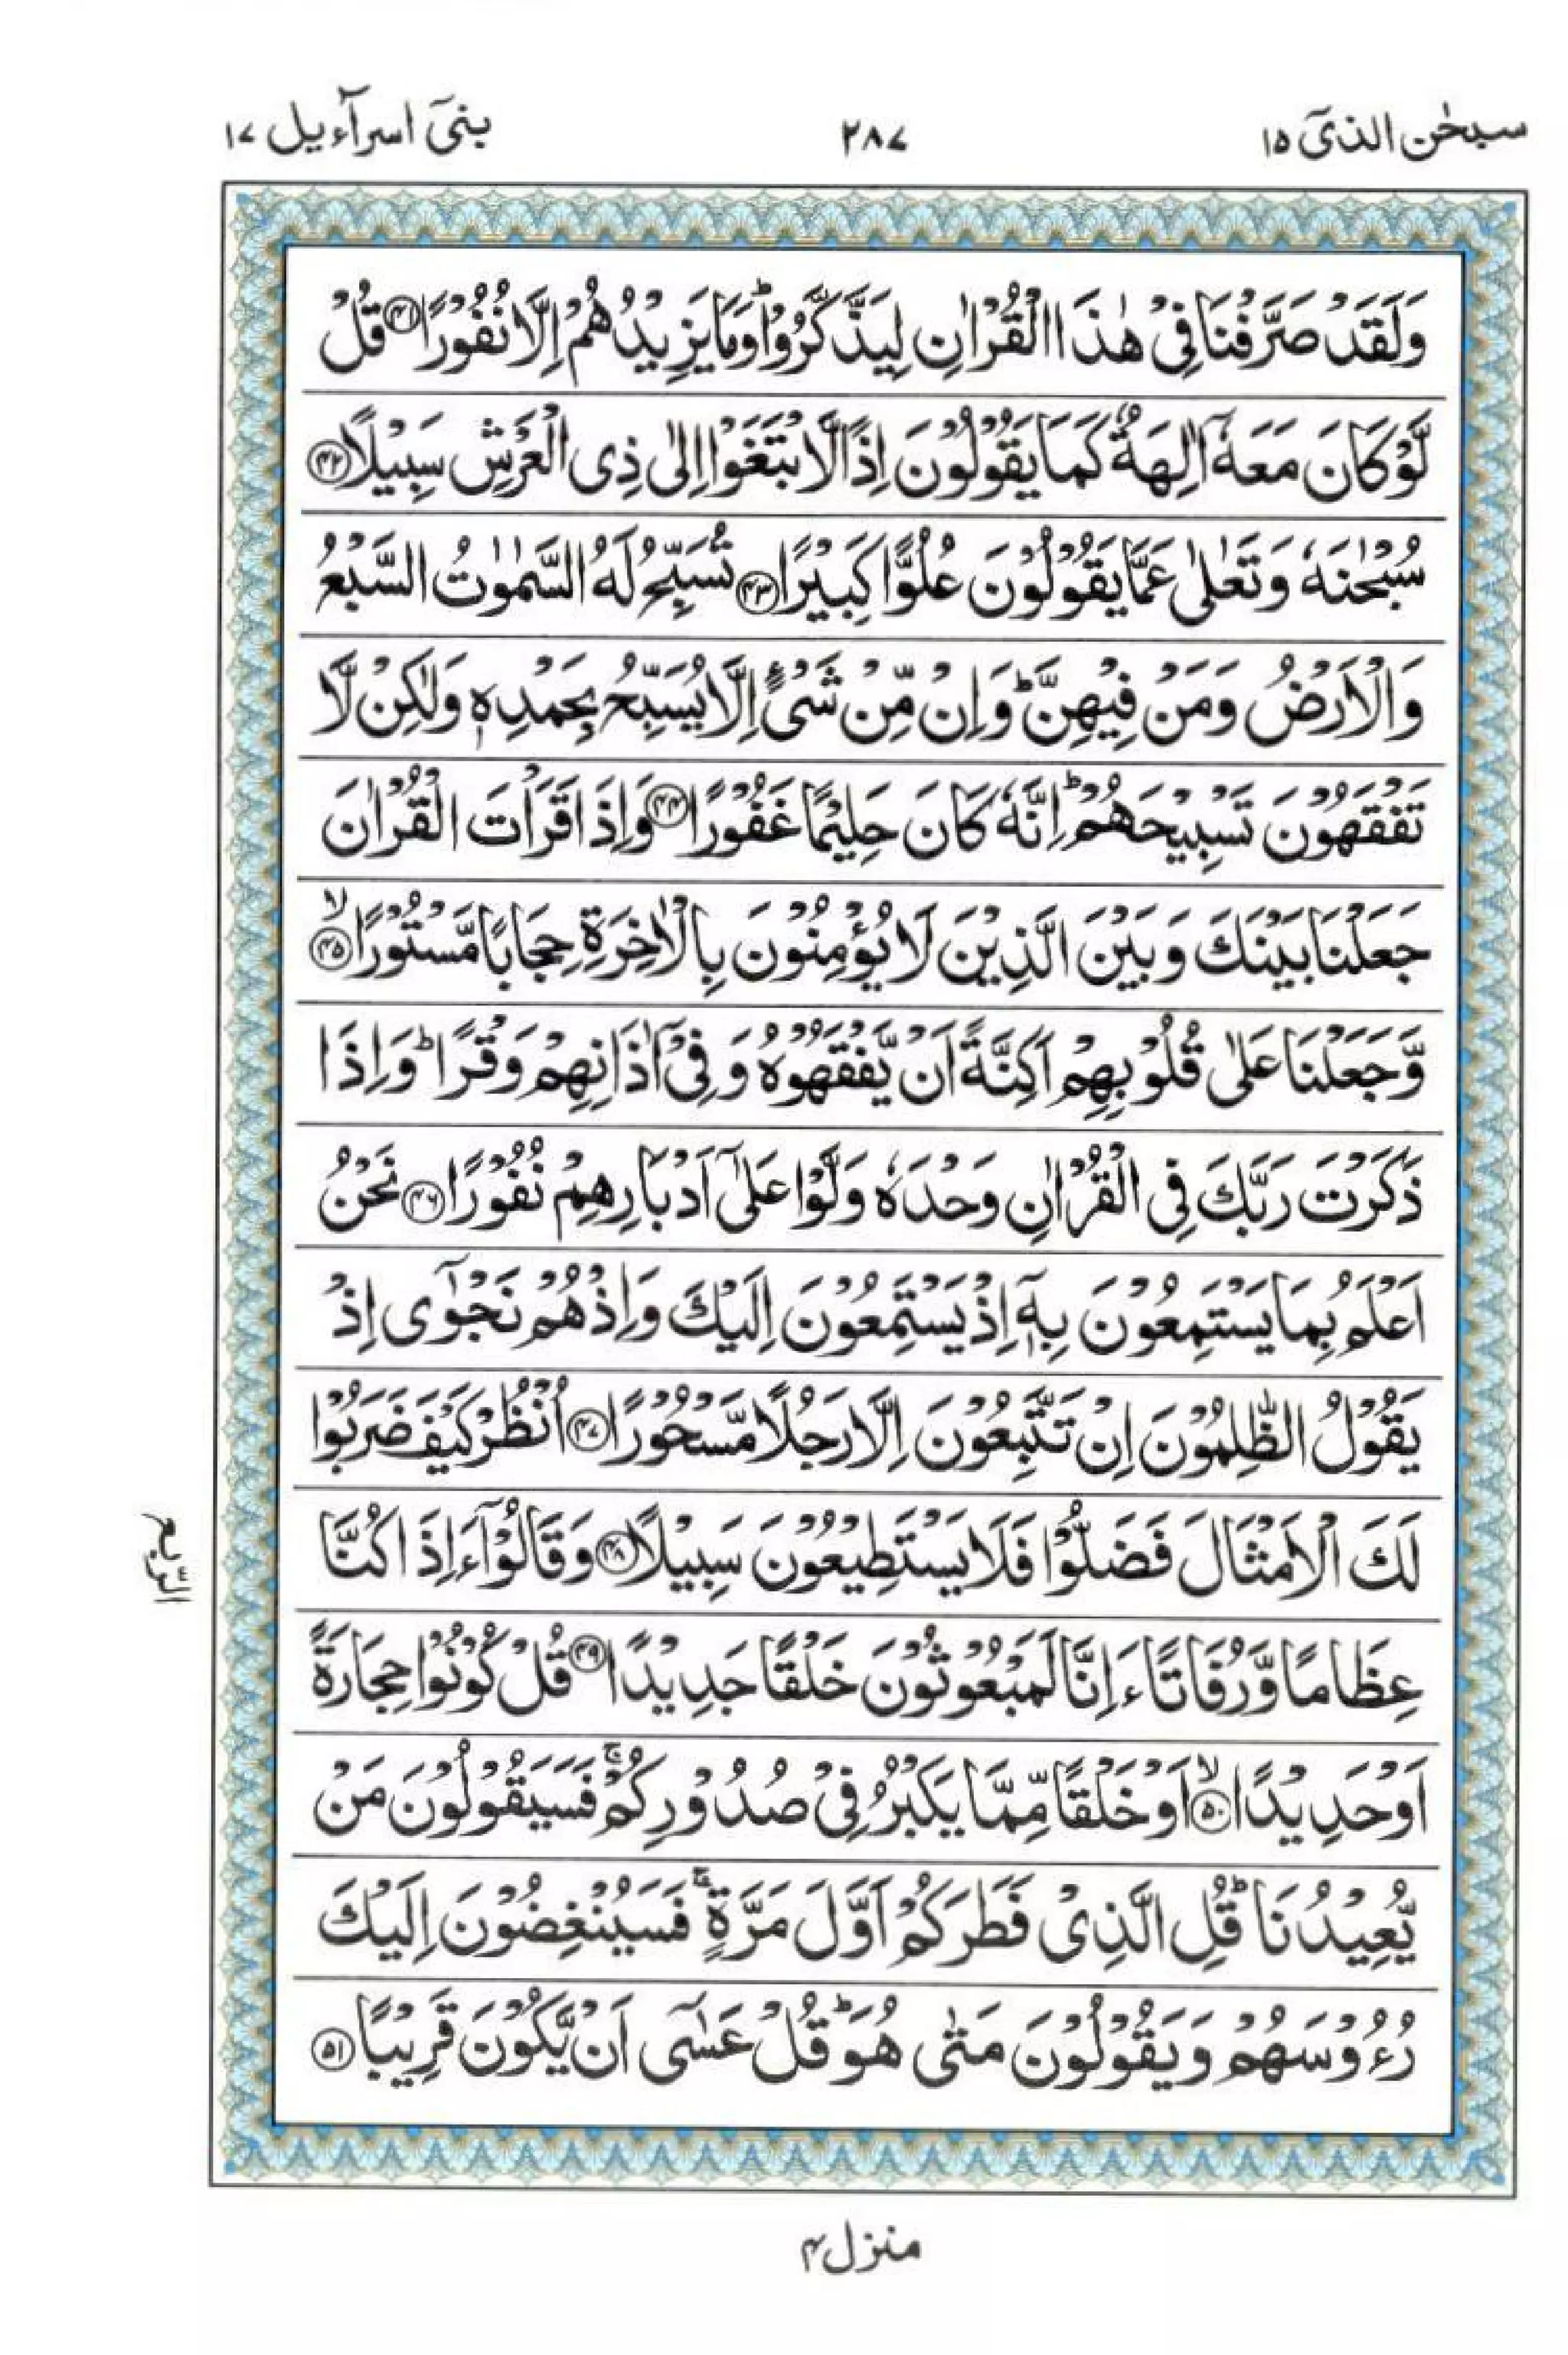 سبحٰن الذیٓ ۱۵
۲۸۷
بنیٓ اسرآءیل ۱۷
وَلَقَدْ صَرَّفْنَا فِیْ هٰذَا الْقُرْاٰنِ لِیَذَّكَّرُوْاؕ وَمَا یَزِیْدُهُمْ اِلَّا نُفُوْرًا ﴿۴۱﴾ قُلْ
لَّوْ كَانَ مَعَهٗۤ اٰلِهَةٌ كَمَا یَقُوْلُوْنَ اِذًا لَّابْتَغَوْا اِلٰی ذِی الْعَرْشِ سَبِیْلًا ﴿۴۲﴾
سُبْحٰنَهٗ وَتَعٰلٰی عَمَّا یَقُوْلُوْنَ عُلُوًّا كَبِیْرًا ﴿۴۳﴾ تُسَبِّحُ لَهُ السَّمٰوٰتُ السَّبْعُ
وَالْاَرْضُ وَمَنْ فِیْهِنَّؕ وَاِنْ مِّنْ شَیْءٍ اِلَّا یُسَبِّحُ بِحَمْدِهٖ وَلٰكِنْ لَّا
تَفْقَهُوْنَ تَسْبِیْحَهُمْؕ اِنَّهٗ كَانَ حَلِیْمًا غَفُوْرًا ﴿۴۴﴾ وَاِذَا قَرَاْتَ الْقُرْاٰنَ
جَعَلْنَا بَیْنَكَ وَبَیْنَ الَّذِیْنَ لَا یُؤْمِنُوْنَ بِالْاٰخِرَةِ حِجَابًا مَّسْتُوْرًاۙ ﴿۴۵﴾
وَّجَعَلْنَا عَلٰی قُلُوْبِهِمْ اَكِنَّةً اَنْ یَّفْقَهُوْهُ وَفِیْۤ اٰذَانِهِمْ وَقْرًاؕ وَاِذَا
ذَكَرْتَ رَبَّكَ فِی الْقُرْاٰنِ وَحْدَهٗ وَلَّوْا عَلٰۤی اَدْبَارِهِمْ نُفُوْرًا ﴿۴۶﴾ نَحْنُ
اَعْلَمُ بِمَا یَسْتَمِعُوْنَ بِهٖۤ اِذْ یَسْتَمِعُوْنَ اِلَیْكَ وَاِذْ هُمْ نَجْوٰۤی اِذْ
یَقُوْلُ الظّٰلِمُوْنَ اِنْ تَتَّبِعُوْنَ اِلَّا رَجُلًا مَّسْحُوْرًا ﴿۴۷﴾ اُنْظُرْ كَیْفَ ضَرَبُوْا
لَكَ الْاَمْثَالَ فَضَلُّوْا فَلَا یَسْتَطِیْعُوْنَ سَبِیْلًا ﴿۴۸﴾ وَقَالُوْۤا ءَاِذَا كُنَّا
عِظَامًا وَّرُفَاتًا ءَاِنَّا لَمَبْعُوْثُوْنَ خَلْقًا جَدِیْدًا ﴿۴۹﴾ قُلْ كُوْنُوْا حِجَارَةً
اَوْ حَدِیْدًاۙ ﴿۵۰﴾ اَوْ خَلْقًا مِّمَّا یَكْبُرُ فِیْ صُدُوْرِكُمْۚ فَسَیَقُوْلُوْنَ مَنْ
یُّعِیْدُنَاؕ قُلِ الَّذِیْ فَطَرَكُمْ اَوَّلَ مَرَّةٍۚ فَسَیُنْغِضُوْنَ اِلَیْكَ
رُءُوْسَهُمْ وَیَقُوْلُوْنَ مَتٰی هُوَؕ قُلْ عَسٰۤی اَنْ یَّكُوْنَ قَرِیْبًا ﴿۵۱﴾
الربع
منزل ۴